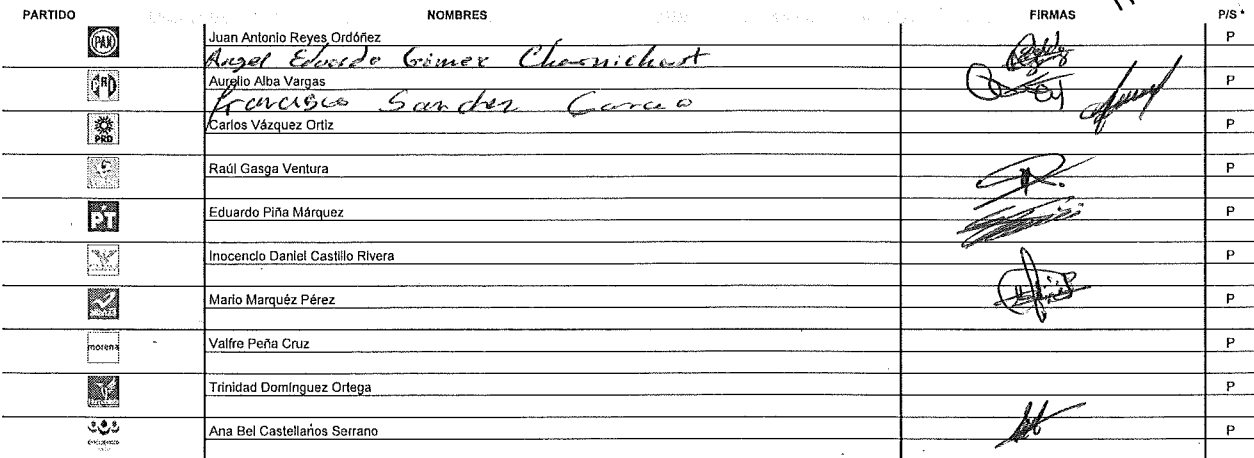 PARTIDO NOMBRES FIRMAS P/S *
PAN Juan Antonio Reyes Ordóñez P
Angel Eduardo Gómez Charnichart
PRD Aurelio Alba Vargas P
Francisco Sanchez
PRD Carlos Vázquez Ortiz P
Raúl Gasga Ventura P
PT Eduardo Piña Márquez P
Inocencio Daniel Castillo Rivera P
Mario Marquéz Pérez P
morena Valfre Peña Cruz P
Trinidad Domínguez Ortega P
Ana Bel Castellanos Serrano P